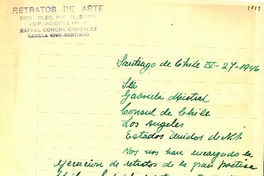 RETRATOS DE ARTE
RAFAEL CONCHA GONZALEZ
CASILLA 4096-SANTIAGO
Santiago de Chile IV-27-1946
Sta
Gabriela Mistral
Consul de Chile
Los Angeles
Estados Unidos de N.A.
Nos han encargado la
ejecucion de retratos de la gran poetisa